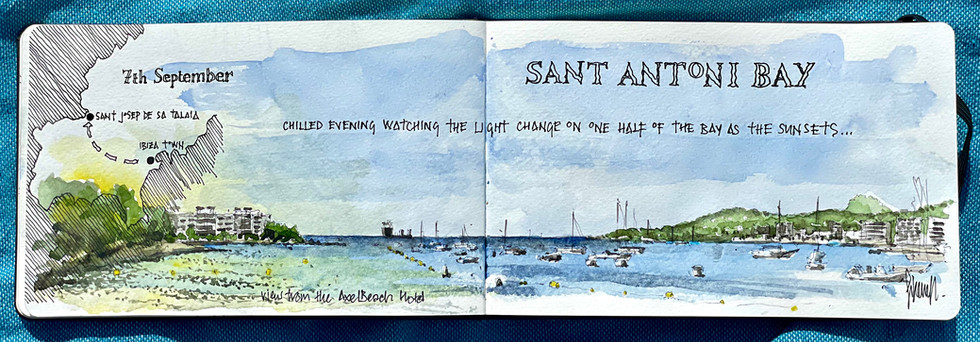 7th September
SANT ANTONI BAY
SANT JOSEP DE SA TALAIA
IBIZA TOWN
CHILLED EVENING WATCHING THE LIGHT CHANGE ON ONE HALF OF THE BAY AS THE SUNSETS...
View from the AxelBeach Hotel